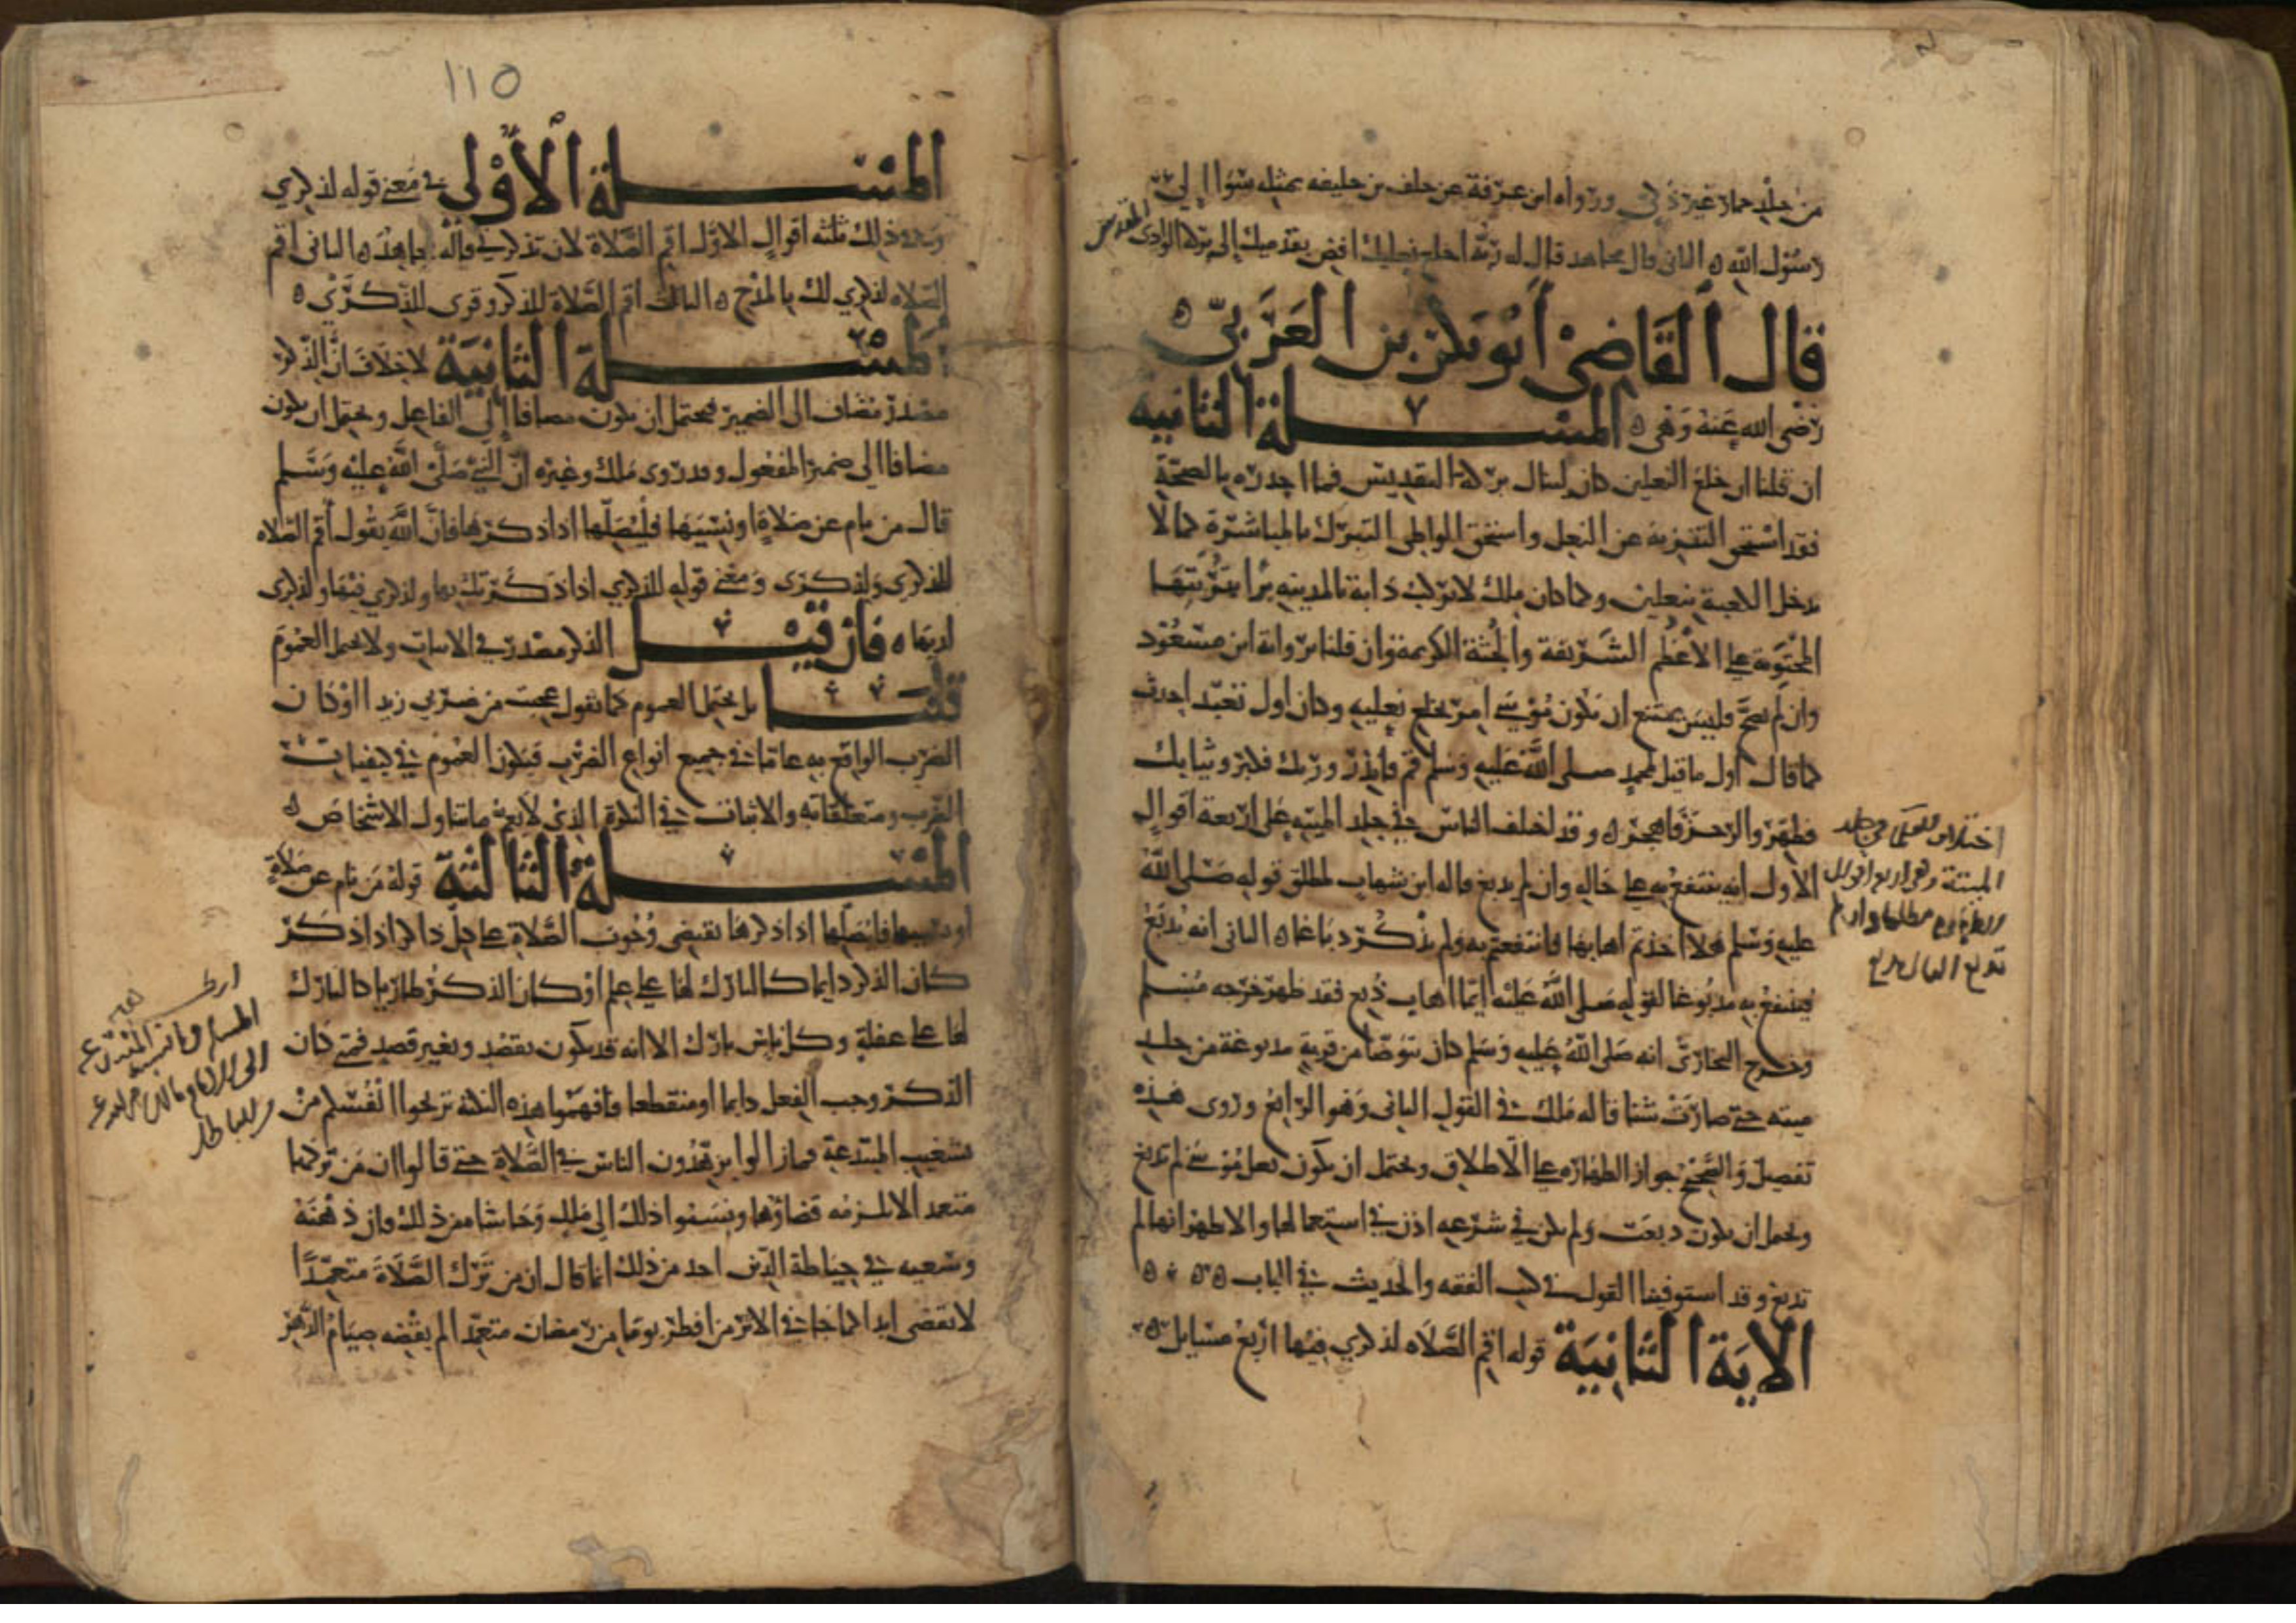 من جلد حمار غير ذكي ورواه ابن عرفة عن خلف بن خليفه بمثله سوا الي
رسول الله الثاني قال مجاهد قال له ربه اخلع نعليك افض بقدميك الى بركة الوادي المقدس
قال القاضي أبو بكر بن العربي
رضي الله عنه وهي المسلة الثانيه
ان قلنا ان خلع النعلين كان لينال بركة التقديس فما اجدره بالصحة
فقد استحق التنزيه عن النعل واستحق الواطي التبرك بالمباشرة كما لا
يدخل الكعبة بنعلين وكما كان ملك لا يركب دابة بالمدينه برا بتربتها
المحتوية على الأعظم الشريفة والجثة الكريمة وان قلنا برواية ابن مسعود
وان لم تصح فليس بممتنع ان يكون موسى امر بخلع نعليه وكان اول تعبد احدث
كما قال اول ما قيل لمحمد صلى الله عليه وسلم قم فانذر وربك فكبر وثيابك
فطهر والرجز فاهجر وقد اختلف الناس في جلد الميته على اربعة اقوال
الأول انه ينتفع به على حاله وان لم يدبغ قاله ابن شهاب لمطلق قوله صلى الله
عليه وسلم هلا اخذتم اهابها فانتفعتم به ولم يذكر دباغا الثاني انه يدبغ
فينتفع به مدبوغا لقوله صلى الله عليه ايما اهاب دبغ فقد طهر خرجه مسلم
وخرج البخاري انه صلى الله عليه وسلم كان يتوضا من قربة مدبوغة من جلد
ميته حتى صارت شنا قاله ملك في القول الثاني وهو الرابع وروى هذه
تفصيل والصحيح جواز الطهارة على الاطلاق ويحتمل ان يكون نعل موسى لم تدبغ
ويحتمل ان يكون دبغت ولم يكن في شرعه اذن في استعمالها والاظهر انها لم
تدبغ وقد استوفينا القول في كتب الفقه والحديث في الباب
الاية الثانية قوله اقم الصلاه لذكري فيها اربع مسايل
اختلاف العلما في جلد
الميتة وهي اربع اقوال
110
المسلة الأولى في معنى قوله لذكري
وفي ذلك ثلثه اقوال الاول اقم الصلاة لان تذكرني قاله مجاهد الثاني اقم
الصلاه لذكري لك بالمدح الثالث اقم الصلاة للذكر وقرى للذكرى
المسلة الثانية لا خلاف ان الذكر
مصدر مضاف الى الضمير فيحتمل ان يكون مضافا إلى الفاعل ويحتمل ان يكون
مضافا الى ضمير المفعول وقد روى ملك وغيره ان النبي صلى الله عليه وسلم
قال من نام عن صلاة او نسيها فليصلها اذا ذكرها فان الله يقول أقم الصلاه
للذكرى ولذكري ومعنى قوله للذكري اذا ذكرتك بها ولذكري فيها ولذكري
لك بها فان قيل الذكر مصدر في الاثبات ولا يحتمل العموم
قلنا بل يحتمل العموم كما تقول عجبت من ضربي زيدا اذا كان
الضرب الواقع به عاما في جميع انواع الضرب فيكون العموم في كيفيات
الضرب ومتعلقاته والاثبات في النكرة الذي لا يعم ما يتناول الاشخاص
المسلة الثالثة قوله من نام عن صلاة
او نسيها فليصلها اذا ذكرها يقتضي وجوب الصلاة على كل ذاكر اذا ذكر
كان الذكر دايما كالتارك لها على علم أو كان الذكر طاريا كالتارك
لها على غفلة وكل ناس تارك الا انه قد يكون بقصد وبغير قصد فمتى كان
الذكر وجب الفعل دايما او منقطعا فافهموا هذه النكتة تريحوا انفسكم من
تشغيب المبتدعة فما زالوا يزهدون الناس في الصلاة حتى قالوا ان من تركها
متعمدا لا يلزمه قضاؤها ونسبوا ذلك الى ملك وحاشا من ذلك فان ذهنه
وسعيه في حياطة الدين احد من ذلك انما قال ان من ترك الصلاة متعمدا
لا يقضي ابدا كما جا في الاثر من افطر يوما من رمضان متعمدا لم يقضه صيام الدهر